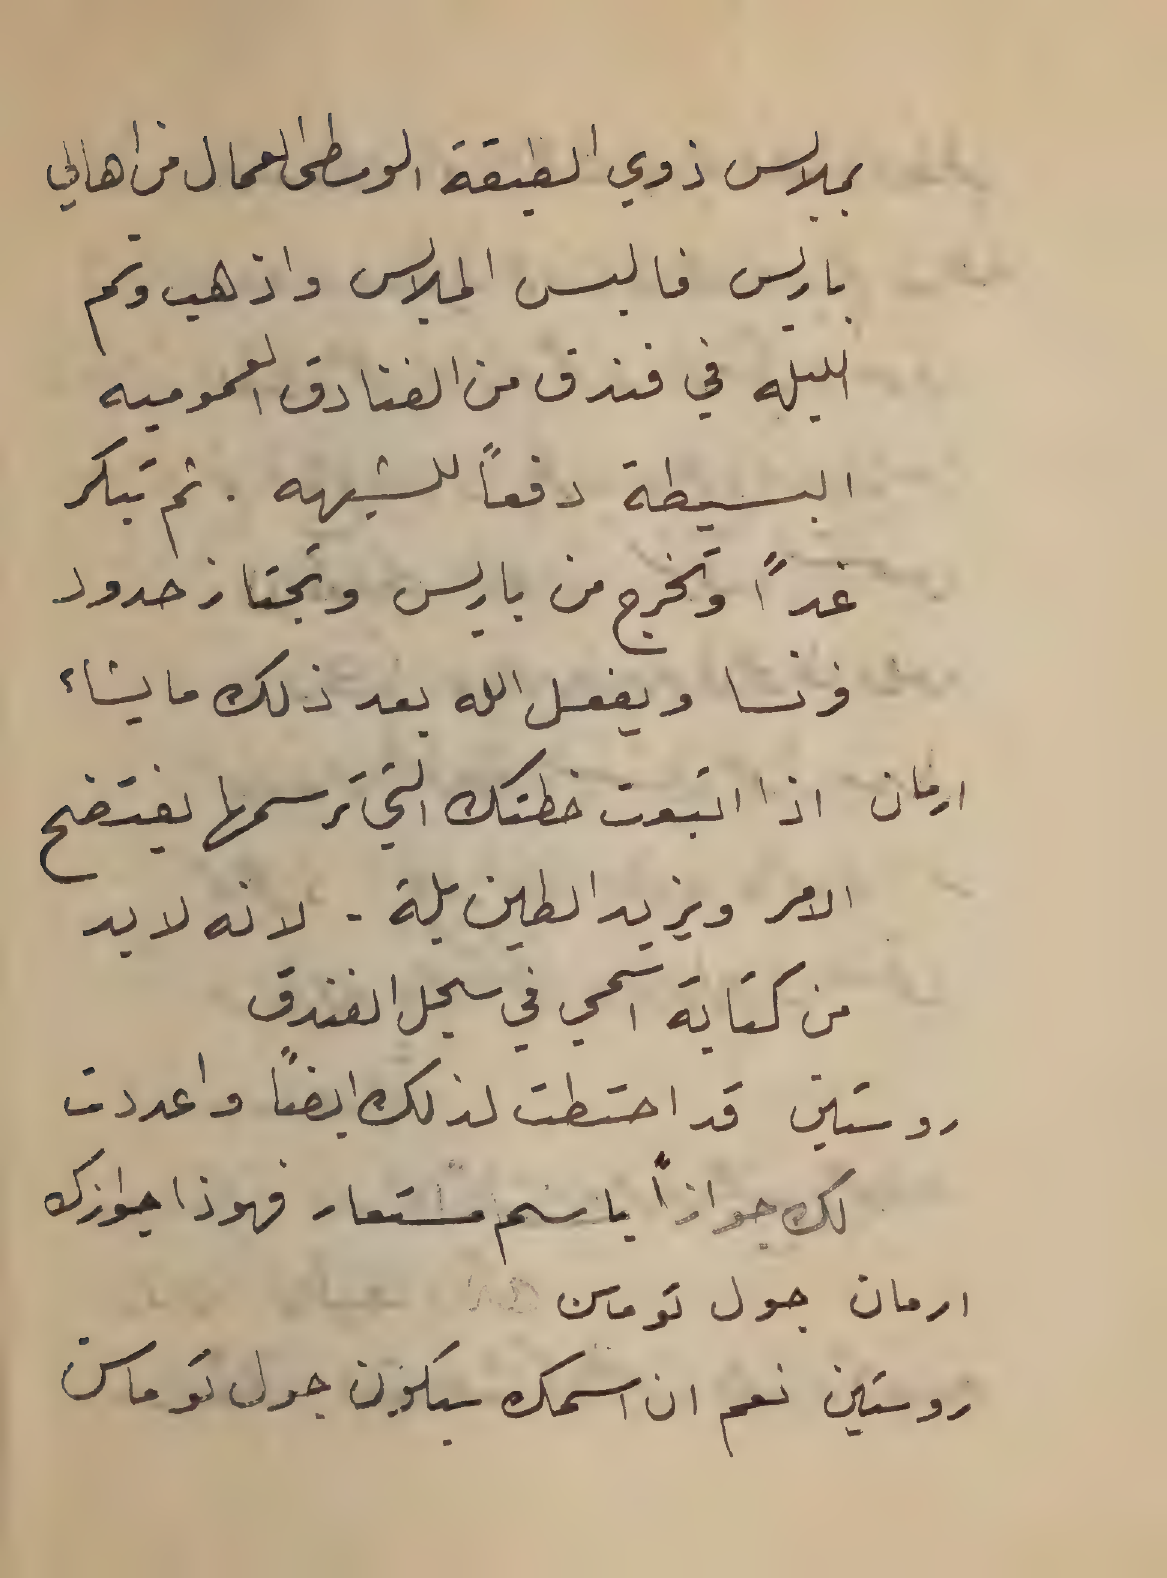 بملابس ذوي الطبقة الوسطى العمال من اهالي
باريس فالبس الملابس واذهب ونم
الليله في فندق من الفنادق العموميه
البسيطة دفعاً للشبهه . ثم تبكر
غداً وتخرج من باريس وتجتاز حدود
فرنسا ويفعل الله بعد ذلك ما يشاء
ارمان اذا اتبعت خطتك التي ترسمها يفتضح
الامر ويزيد الطين بلة - لانه لا بد
من كتابة اسمي في سجل الفندق
روستين قد احتطت لذلك ايضاً واعددت
لك جوازاً باسم مستعار فهوذا جوازك
ارمان جول توماس
روستين نعم ان اسمك سيكون جول توماس